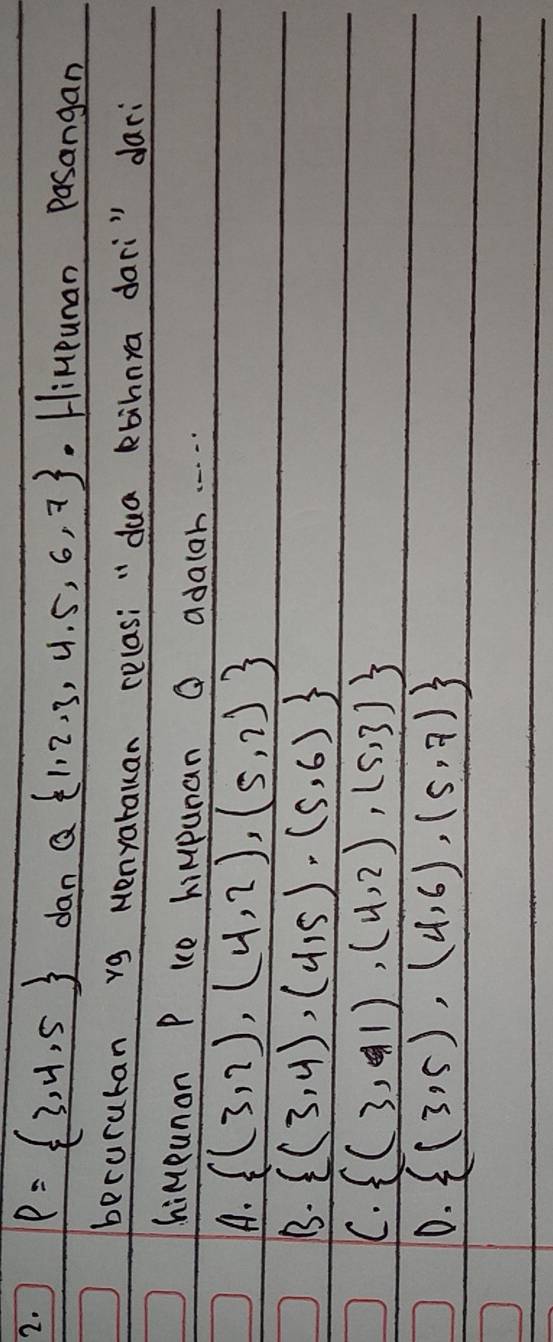 2. P = {3,4,5} dan Q {1,2,3,4,5,6,7}. Himpunan Pasangan
berurutan yg Menyatakan relasi "dua lebihnya dari" dari
himpunan P ke himpunan Q adalah .....
A. {(3,2), (4,2), (5,2)}
B. {(3,4), (4,5), (5,6)}
C. {(3,1), (4,2), (5,3)}
D. {(3,5), (4,6), (5,7)}